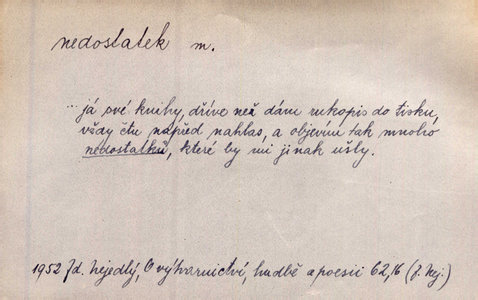 nedostatek m.
... já své knihy, dříve než dám rukopis do tisku,
vždy čtu napřed nahlas, a objevím tak mnoho
nedostatků, které by mi jinak ušly.
1952 Zd. Nejedlý, O výtvarnictví, hudbě a poesii 62,16 (Z. Nej.)